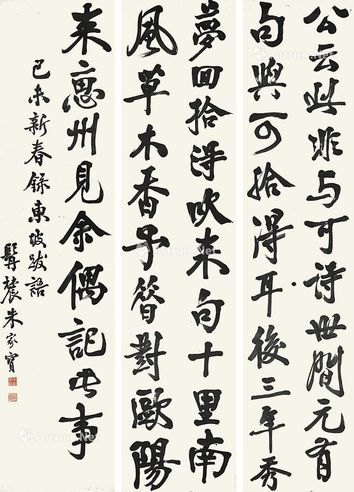 公云此非与可詩世間元有
句與可拾得耳後三年秀
夢回拾得吹来句十里南
風草木香予對歐陽
来惠州見余偶記此事
己未新春錄東坡跋語
髯農朱家寶